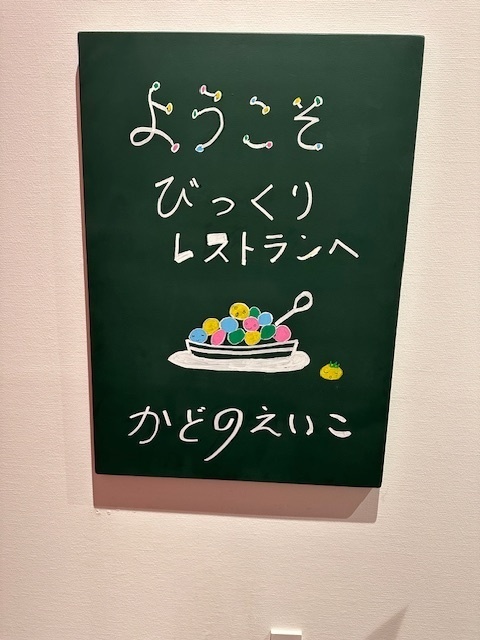 ようこそ
びっくり
レストランへ
かどのえいこ